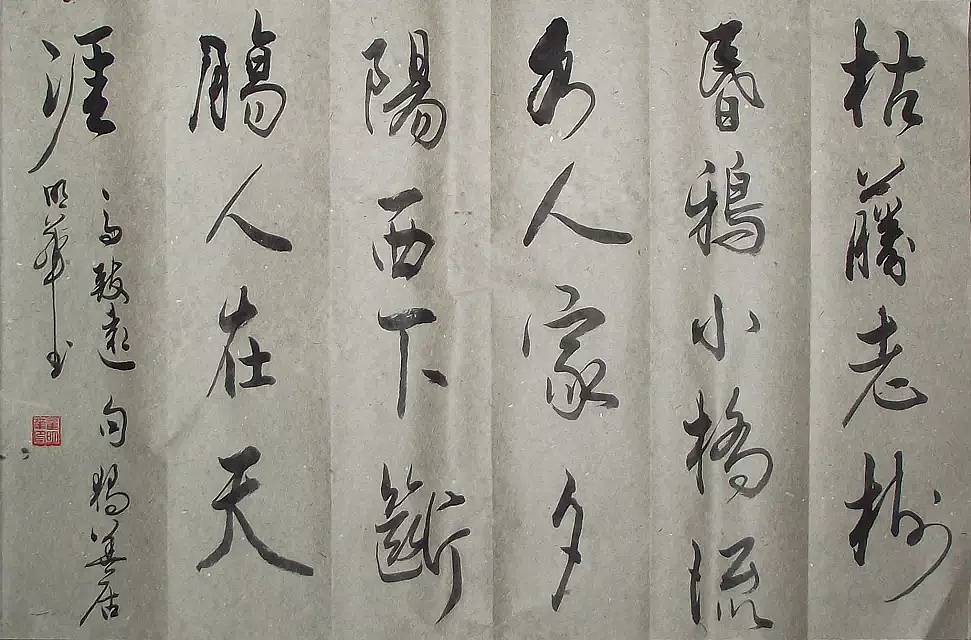 枯藤老樹
昏鴉小橋流
水人家夕
陽西下斷
腸人在天
涯
馬致遠句獨善居
明華書